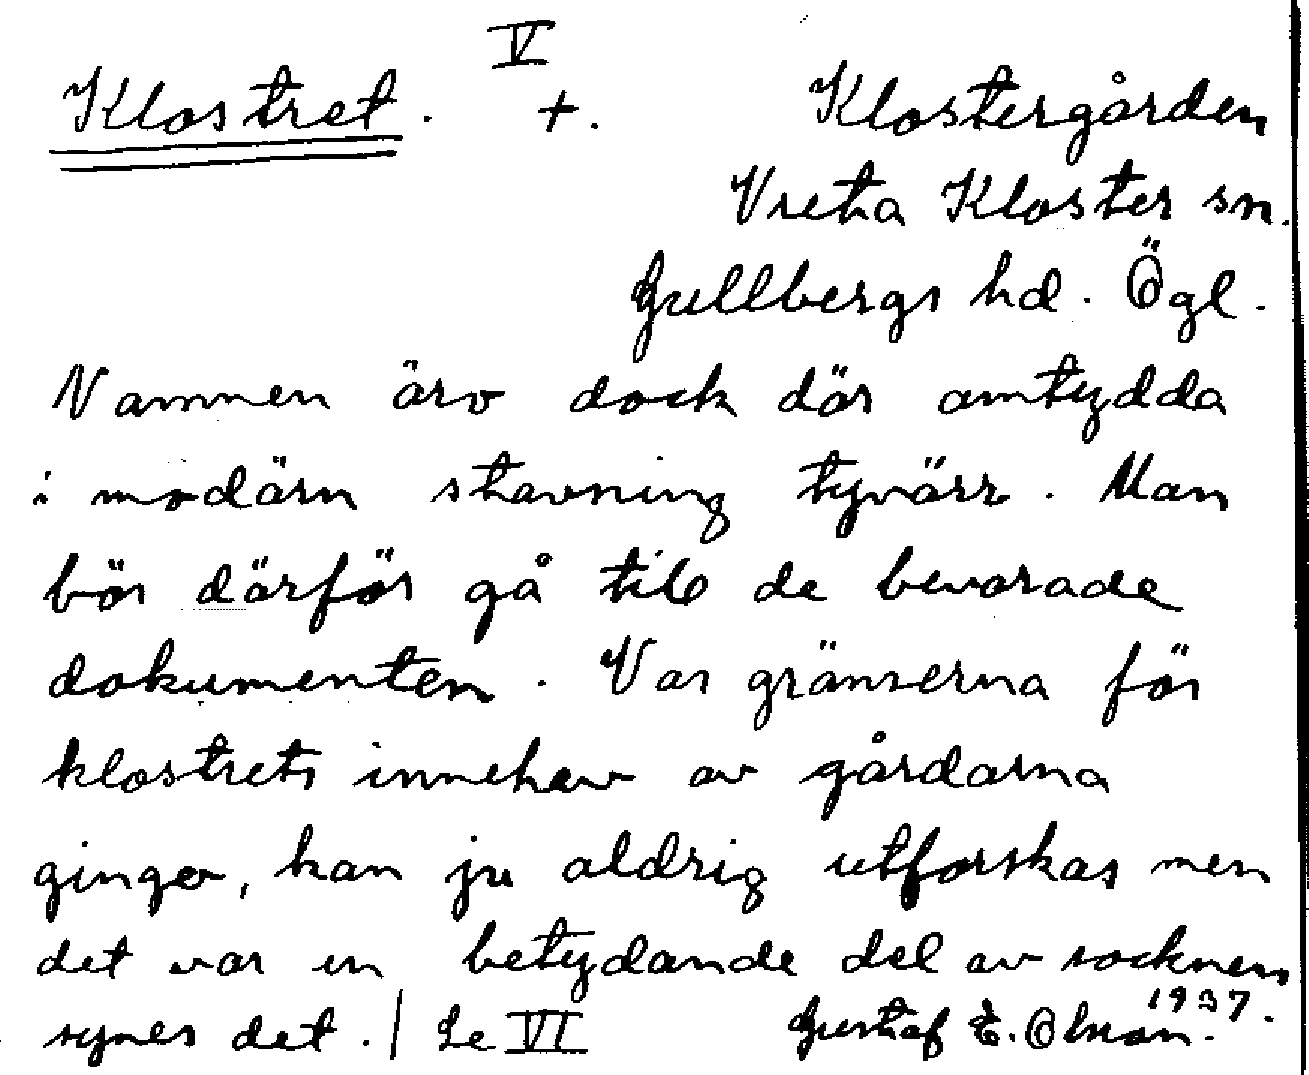 V
Klostret. +. Klostergården
Vreta Kloster sn.
Gullbergs hd. Ögl.
Namnen äro dock där antydda
i modärn stavning tyvärr. Man
bör därför gå till de bevarade
dokumenten. Var gränserna för
klostrets innehav av gårdarna
gingo, kan ju aldrig utforskas men
det var en betydande del av socknen
synes det. / Se VI Gustaf E. Olson. 1937.